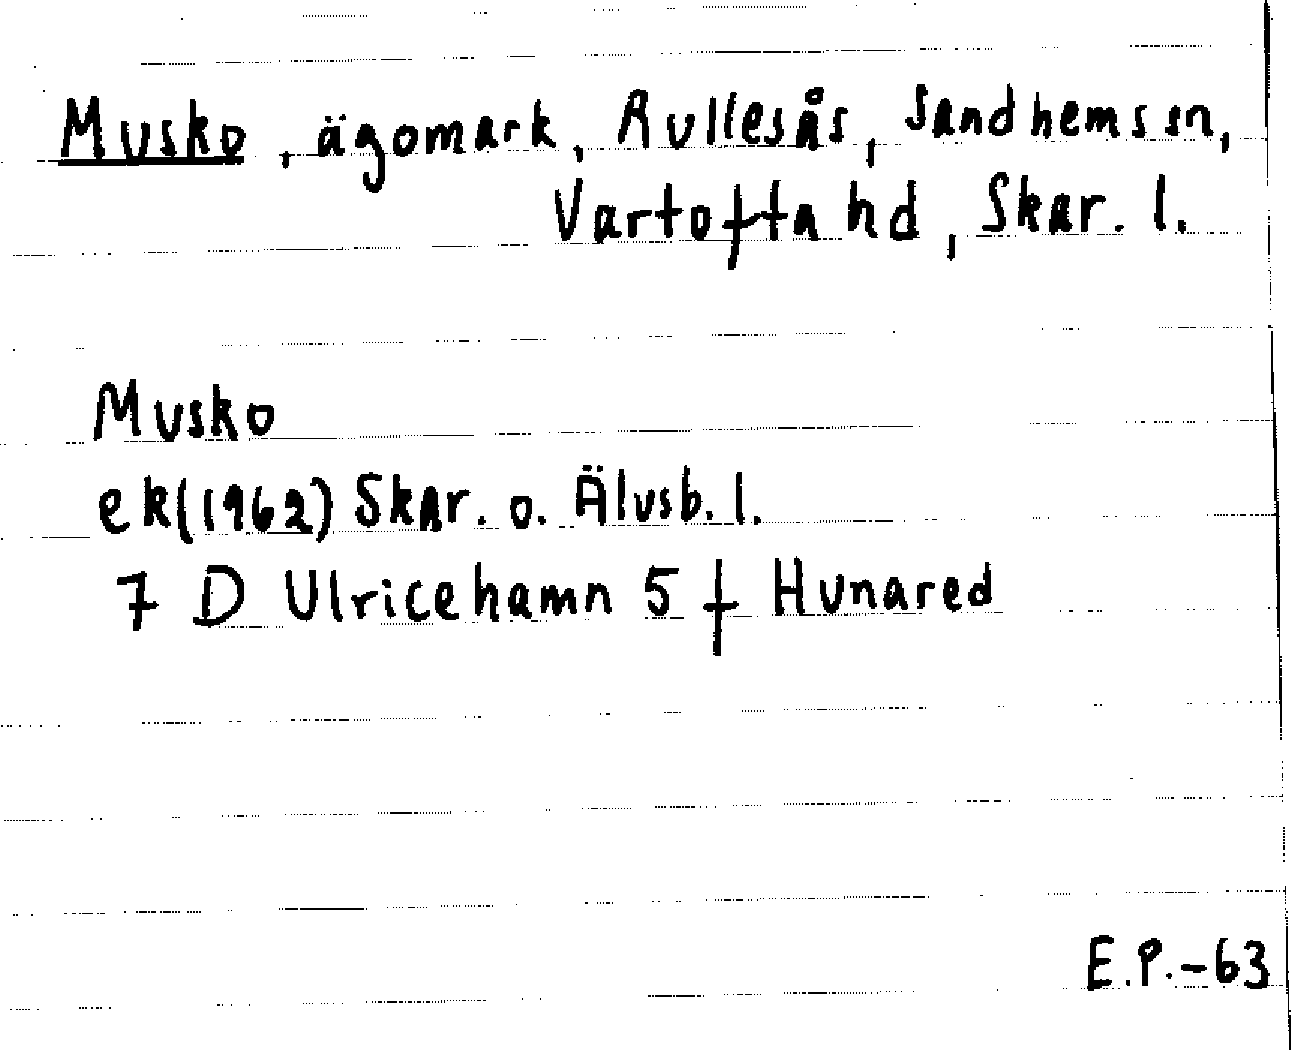 Musko, ägomark, Rullesås, Sandhems sn,
Vartofta hd, Skar. l.
Musko
ek(1962) Skar. o. Älvsb. l.
7 D Ulricehamn 5 f Hunared
E.P.-63